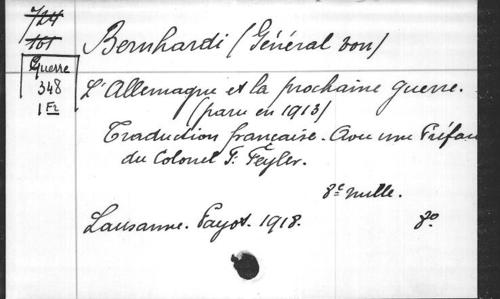 724
101
Guerre
348
1 Ex
Bernhardi (Général von)
L'Allemagne et la prochaine guerre.
(paru en 1913)
Traduction française. Avec une Préface
du Colonel F. Feyler.
8e mille.
Lausanne. Payot. 1918. 8o